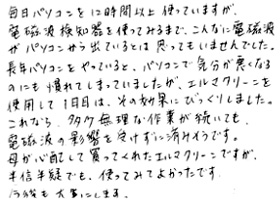 毎日パソコンを12時間以上使っていますが、
電磁波検知器を使ってみるまで、こんなに電磁波
がパソコンから出ているとは思ってもいませんでした。
長年パソコンをやっていると、パソコンで気分が悪くなる
のにも慣れてしまっていましたが、エルマクリーンを
使用して1日目は、その効果にびっくりしました。
これなら、多少無理な作業が続いても、
電磁波の影響を受けずに済みそうです。
母が心配して買ってくれたエルマクリーンですが、
半信半疑でも、使ってみてよかったです。
今後も大事にします。